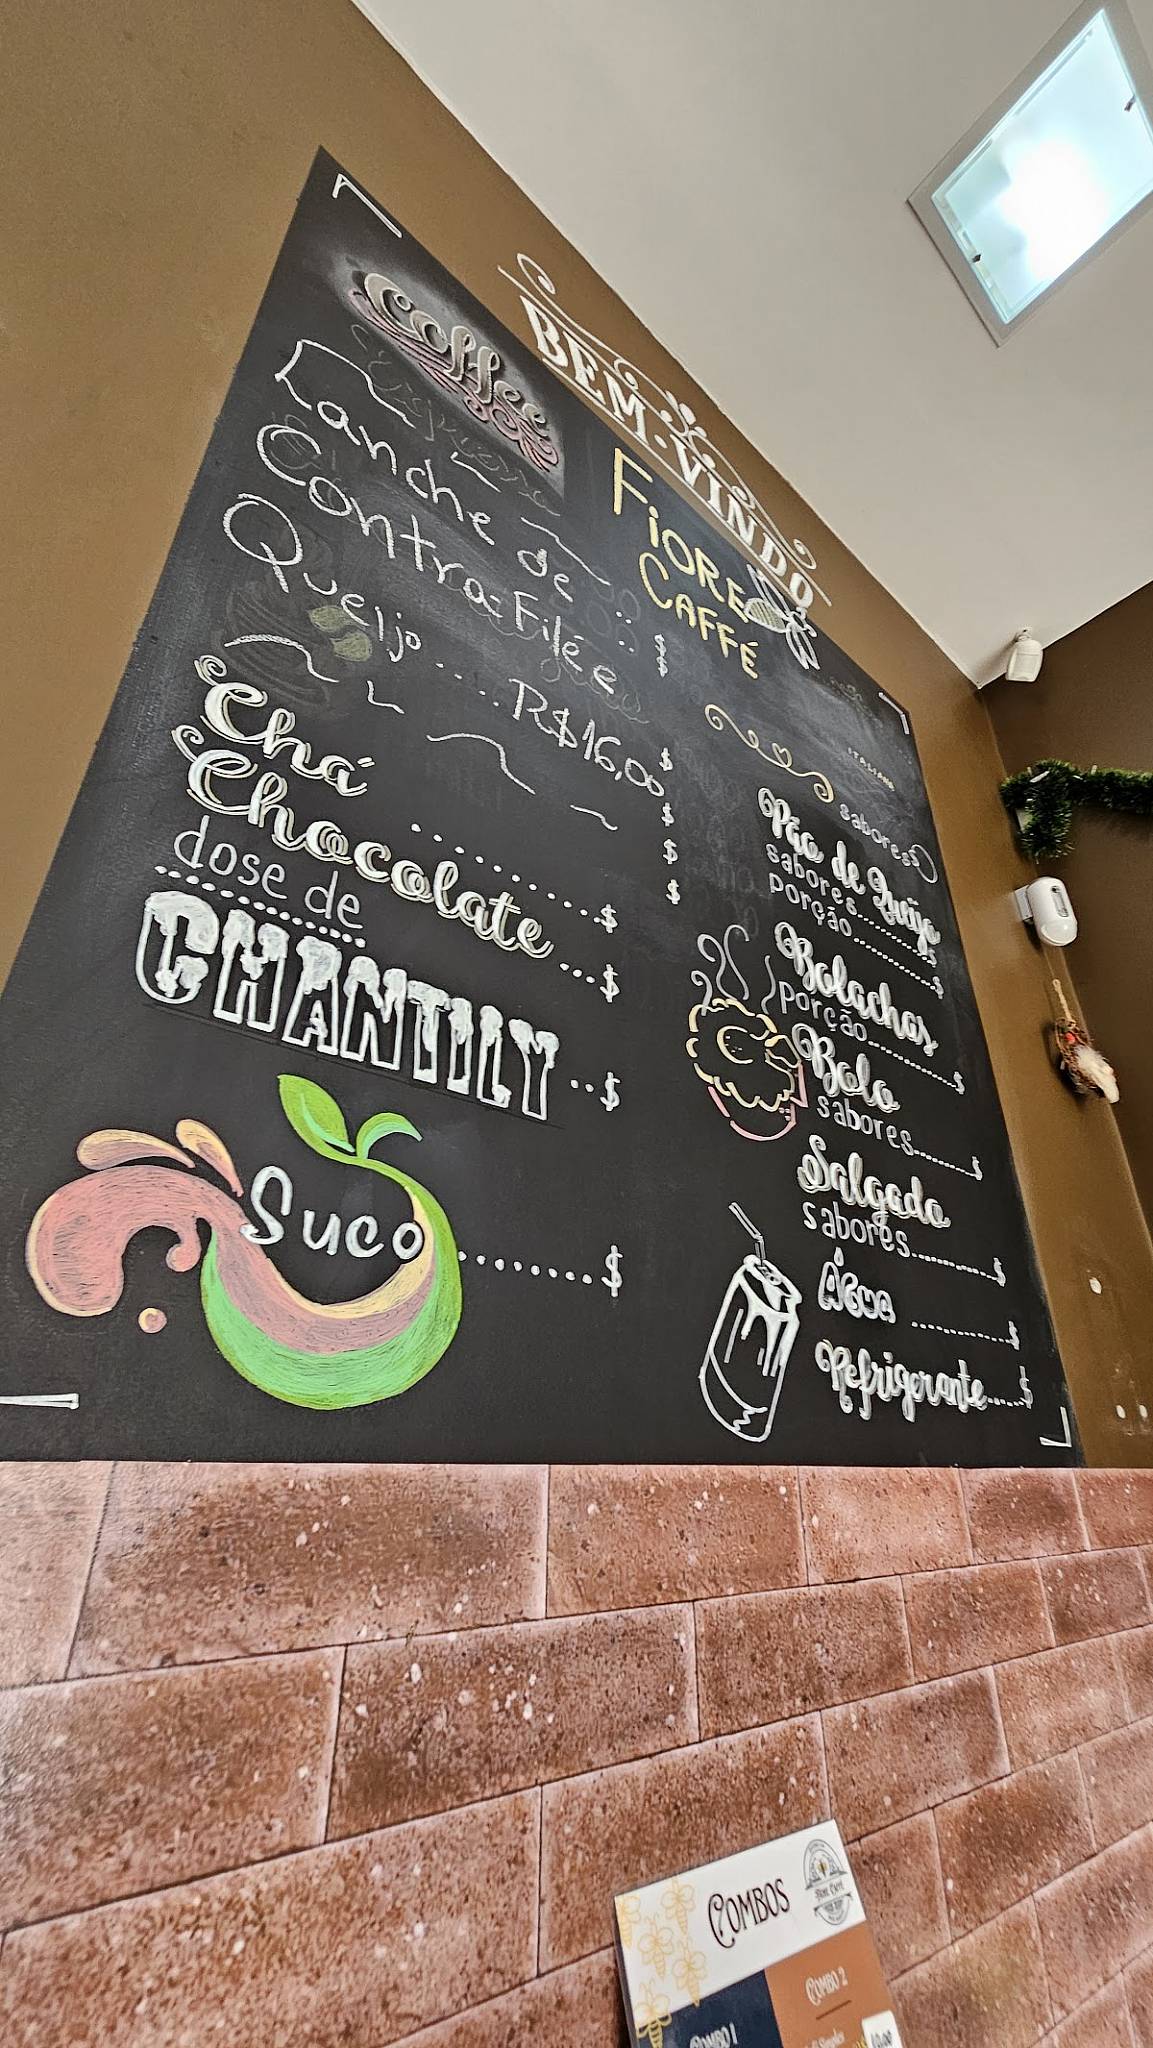 BEM·VINDO
Coffee
Lanche de
Contra-Filé e
Queijo ........ R$16,00
Chá ............$
Chocolate ....$
dose de
CHANTILY ..$
Suco .........$
FiORE
CAFFÉ
$
$
$
$
$
ITALIANO
sabores
Pão de Queijo
sabores..........$
porção ............$
Bolachas
porção............$
Bolo
sabores.........$
Salgado
sabores...........$
Água ..............$
Refrigerante.....$
COMBOS
COMBO 1
COMBO 2